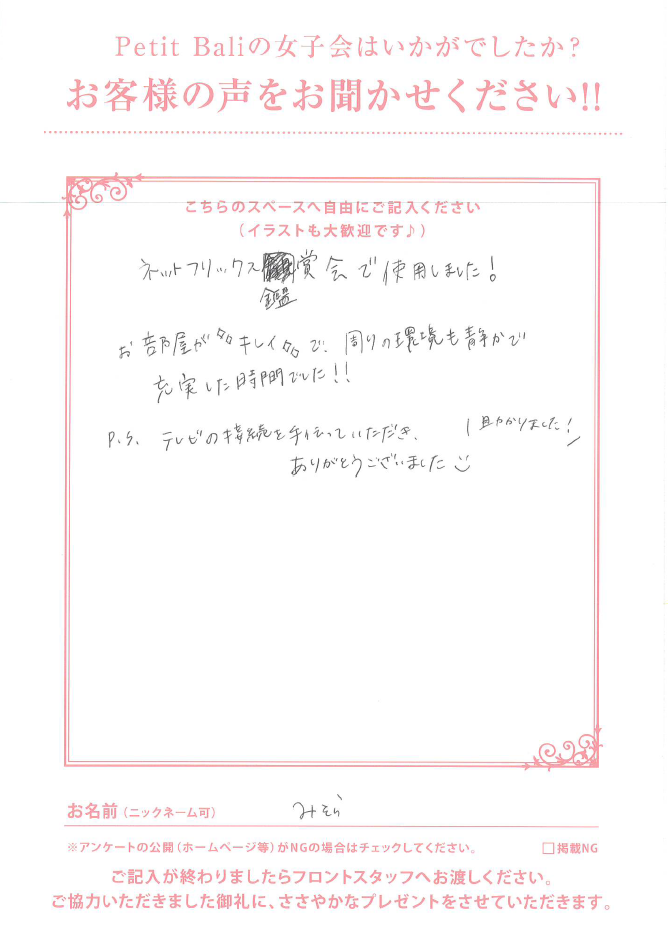 Petit Baliの女子会はいかがでしたか？
お客様の声をお聞かせください!!
こちらのスペースへ自由にご記入ください
（イラストも大歓迎です♪）
ネットフリックス鑑賞会で使用しました！
お部屋がキレイで、周りの環境も静かで
充実した時間でした!!
P.S. テレビの接続を手伝っていただき、助かりました！
ありがとうございました
お名前（ニックネーム可） みそら
※アンケートの公開（ホームページ等）がNGの場合はチェックしてください。 □掲載NG
ご記入が終わりましたらフロントスタッフへお渡しください。
ご協力いただきました御礼に、ささやかなプレゼントをさせていただきます。